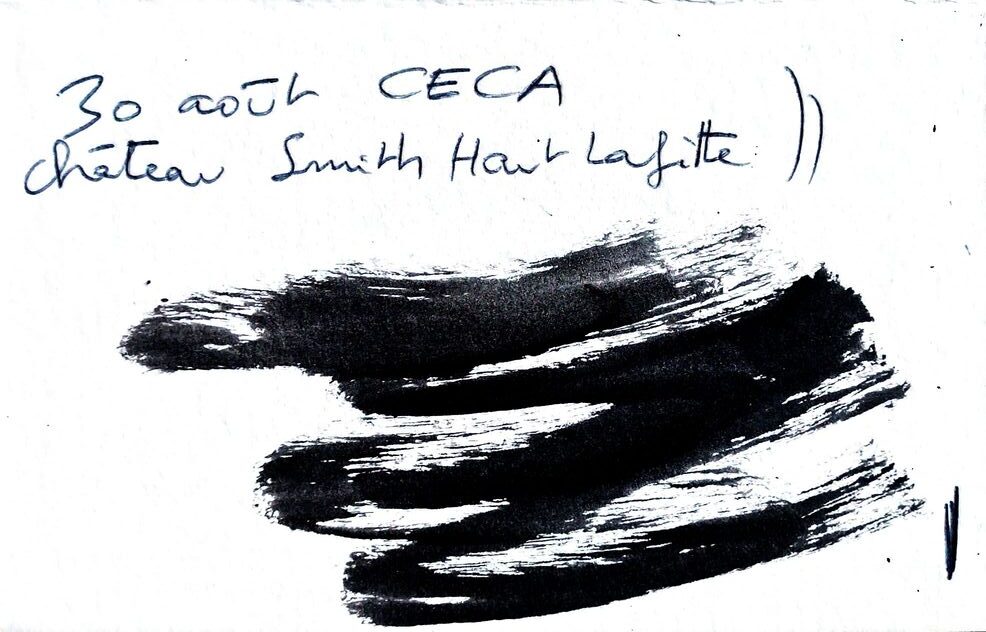 30 août CECA
Château Smith Haut Lafitte